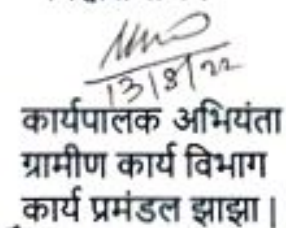 13/8/22
कार्यपालक अभियंता
ग्रामीण कार्य विभाग
कार्य प्रमंडल झाझा |